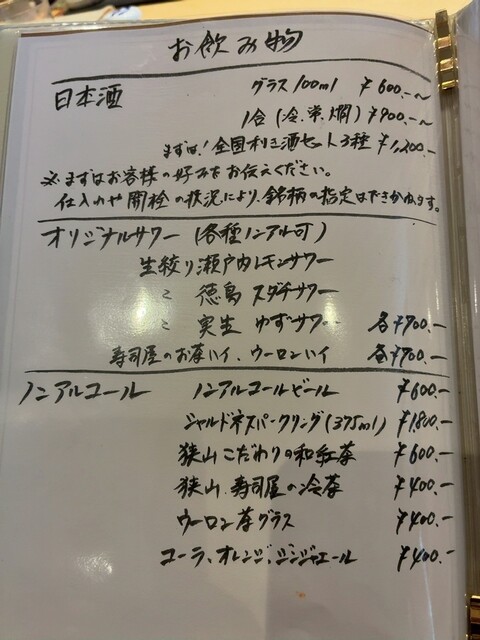 お飲み物
日本酒 グラス100ml ¥600.-～
1合(冷.常.燗) ¥900.-～
まずは!全国利き酒セット3種 ¥1,200.-
※まずはお客様の好みをお伝えください。
仕入れや開栓の状況により、銘柄の指定はできかねます。
オリジナルサワー (各種ノンアル可)
生絞り瀬戸内レモンサワー
〃 徳島 スダチサワー
〃 実生 ゆずサワー 各¥700.-
寿司屋のお茶ハイ、ウーロンハイ 各¥700.-
ノンアルコール ノンアルコールビール ¥600.-
シャルドネスパークリング(375ml) ¥1,800.-
狭山こだわりの和紅茶 ¥600.-
狭山.寿司屋の冷茶 ¥400.-
ウーロン茶グラス ¥400.-
コーラ、オレンジ、ジンジャエール ¥400.-